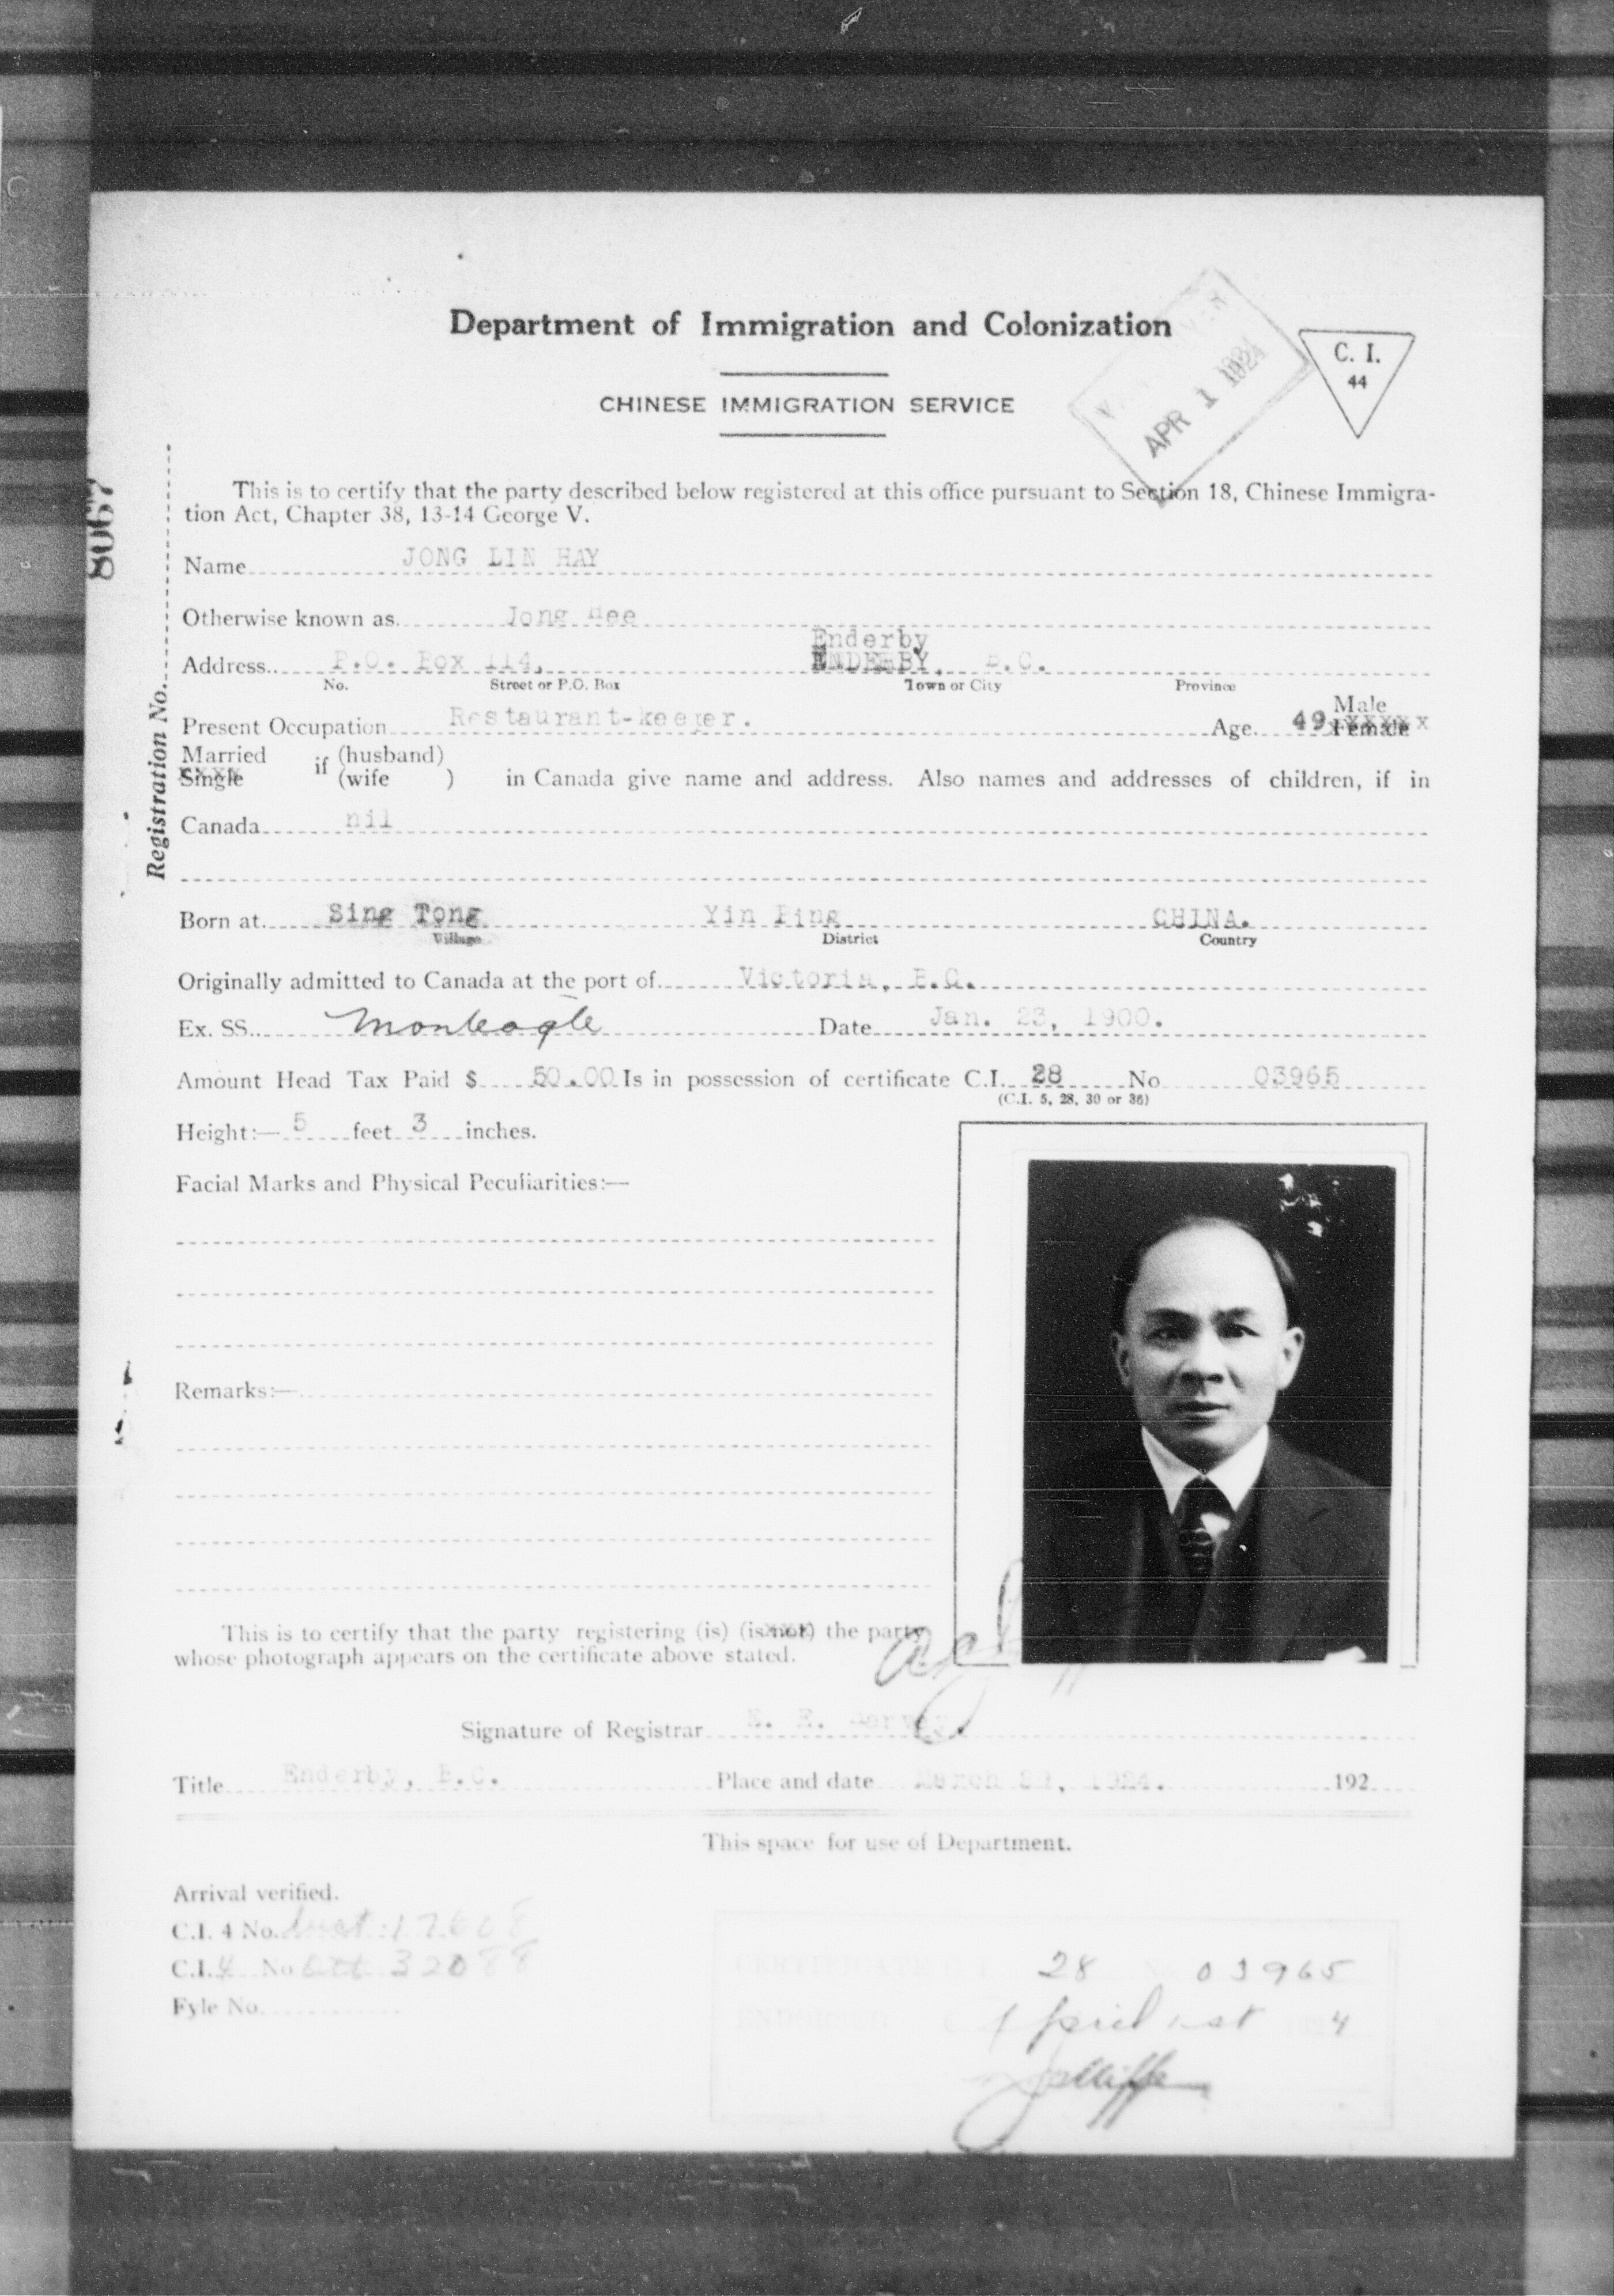 Department of Immigration and Colonization
CHINESE IMMIGRATION SERVICE
APR 1 1924
C. I.
44
8067
Registration No.
This is to certify that the party described below registered at this office pursuant to Section 18, Chinese Immigra-
tion Act, Chapter 38, 13-14 George V.
Name JONG LIN HAY
Otherwise known as Jong Hee
Enderby
Address P.O. Box 114, ENDERBY, B.C.
No. Street or P.O. Box Town or City Province
Male
Present Occupation Restaurant-keeper. Age 49 Female xxxxx
Married if (husband)
Single xxxx (wife ) in Canada give name and address. Also names and addresses of children, if in
Canada nil
Born at Sing Tong Yin Ping CHINA.
Village District Country
Originally admitted to Canada at the port of Victoria, B.C.
Ex. SS. Monteagle Date Jan. 23, 1900.
Amount Head Tax Paid $ 50.00 Is in possession of certificate C.I. 28 No 03965
(C.I. 5, 28, 30 or 36)
Height:— 5 feet 3 inches.
Facial Marks and Physical Peculiarities:—
Remarks:—
This is to certify that the party registering (is) (is not) the party
whose photograph appears on the certificate above stated.
Signature of Registrar
Title Enderby, B.C. Place and date March 1924. 192
This space for use of Department.
Arrival verified.
C.I. 4 No.
C.I. 4 No
Fyle No.
CERTIFICATE C.I. 28 03965
ENDORSED April 1st 1924
Jolliffe